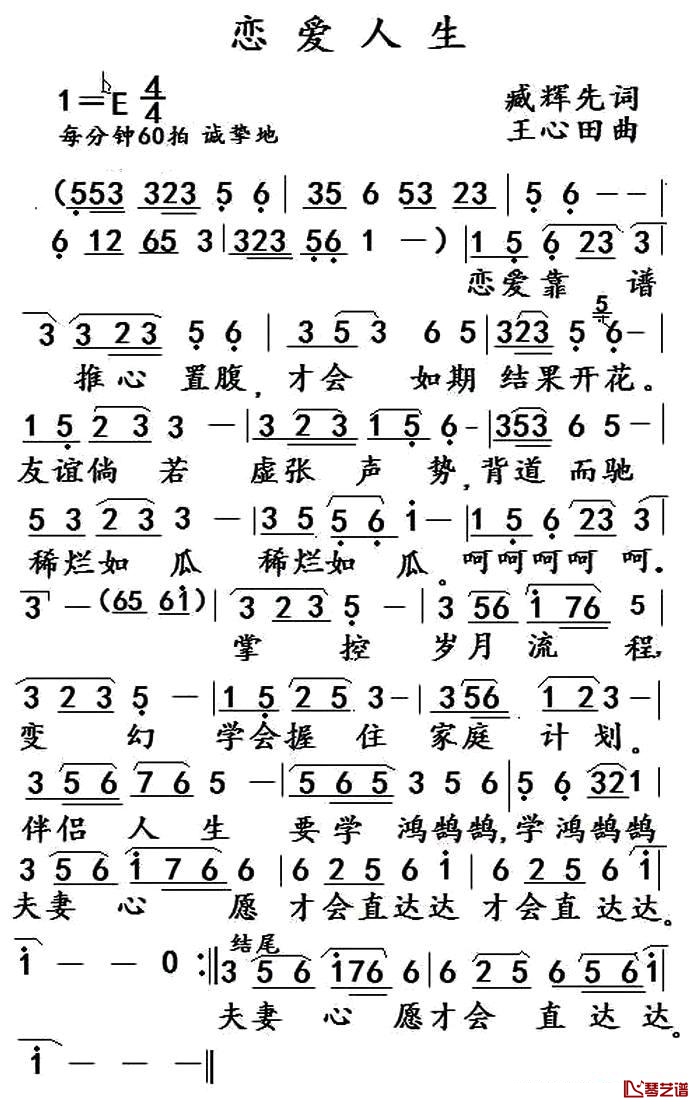 恋爱人生
1=♭E 4/4 臧辉先词
每分钟60拍 诚挚地 王心田曲
(553 323 5 6 | 35 6 53 23 | 5 6 - -
6 12 65 3 | 323 56 1 -) | 1 5 6 23 3 |
恋爱靠 谱
3 3 23 5 6 | 3 5 3 6 5 | 323 5 5 6 -
推心 置腹，才会 如期 结果开花。
1 5 2 3 3 - | 3 2 3 1 5 6 - | 353 6 5 -
友谊倘 若 虚张 声 势，背道 而驰
5 3 2 3 3 - | 3 5 5 6 i - | 1 5 6 23 3
稀烂如 瓜 稀烂如 瓜。呵呵呵呵 呵.
3 - (65 6i) | 3 2 3 5 - | 3 56 i 76 5
掌 控 岁月 流 程,
3 2 3 5 - | 1 5 2 5 3 - | 3 56 1 2 3 -
变 幻 学会握 住 家庭 计 划。
3 5 6 7 6 5 - | 5 6 5 3 5 6 | 5 6 321
伴侣 人 生 要学 鸿鹄鹄,学鸿鹄鹄
3 5 6 i 7 6 6 | 6 2 5 6 i | 6 2 5 6 i |
夫妻 心 愿 才会直达达 才会直 达达。
i - - 0 :|| 结尾 3 5 6 i76 6 | 6 2 5 5 6 i |
夫妻 心 愿才会 直达达。
i - - - ||
琴艺谱